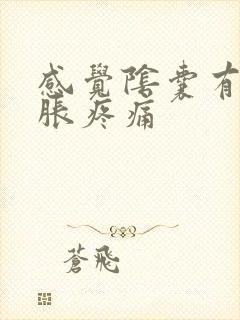 感覺陰囊有
脹疼痛
蒼飛